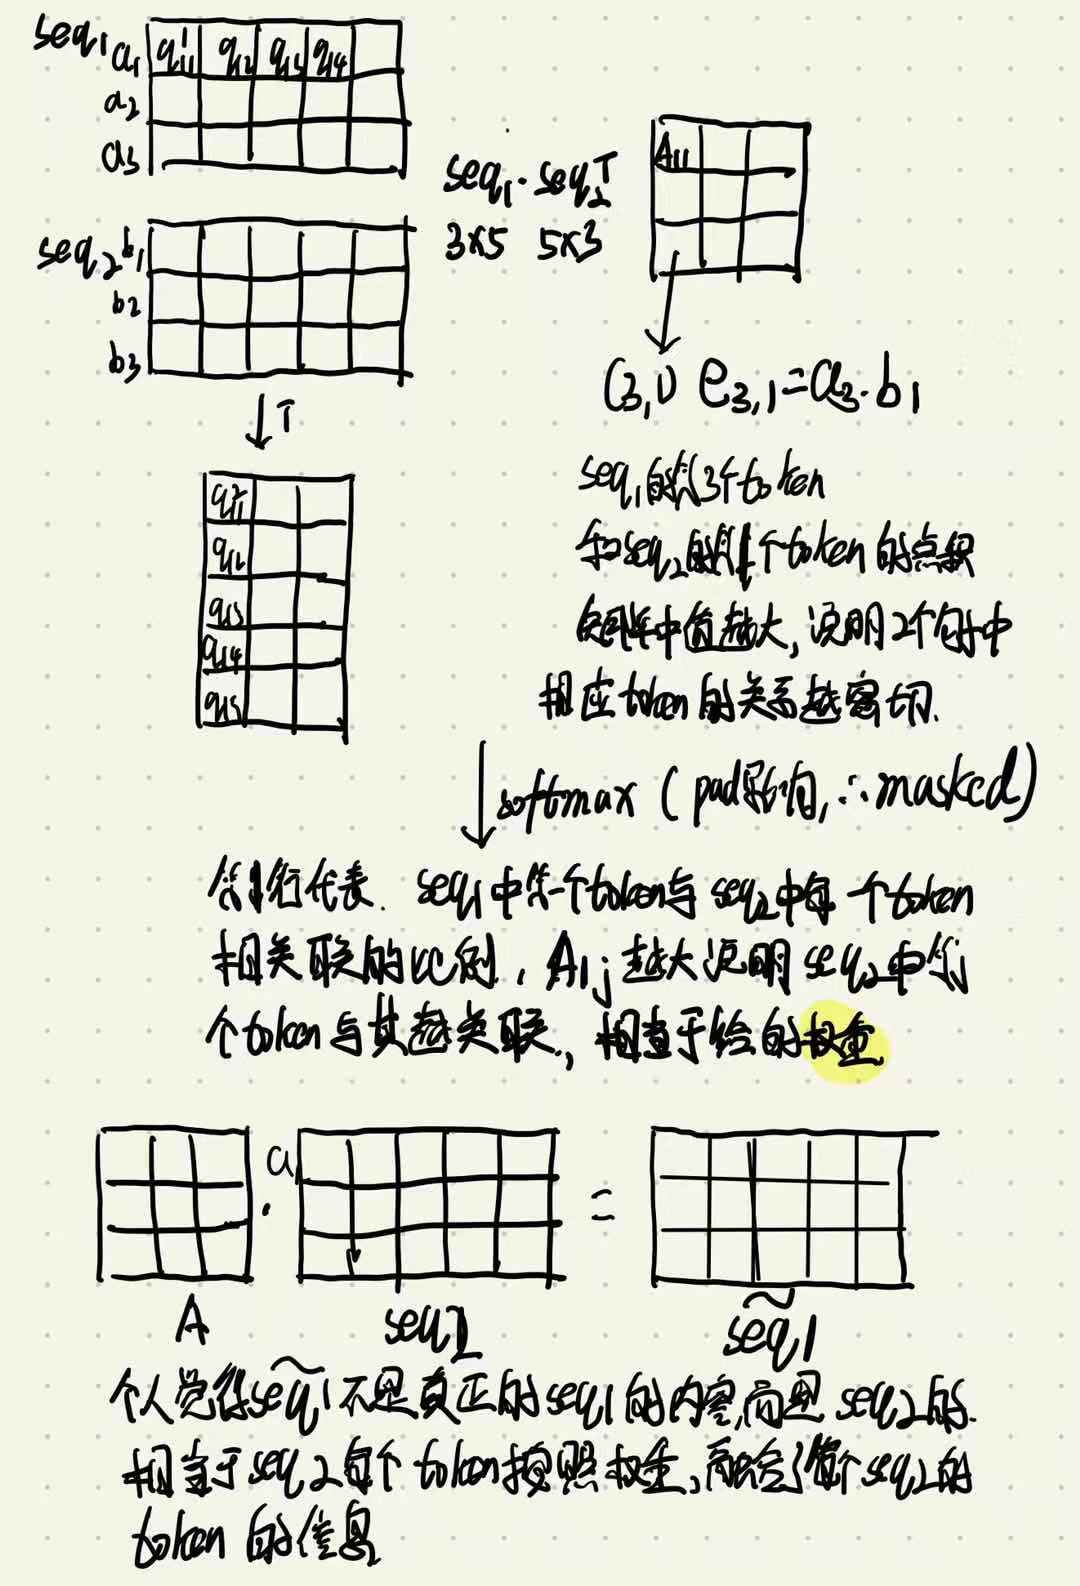 seq₁
a₁ q¹₁₁ q₁₂ q₁₃ q₁₄
a₂
a₃
seq₂ b₁
b₂
b₃
↓T
q²₁₁
q₁₂
q₁₃
q₁₄
q₁₅
seq₁·seq₂ᵀ
3×5 5×3
A₁₁
(3,1) e₃,₁=a₃·b₁
seq₁的第3个token
和seq₂的第1个token的点积
矩阵中值越大,说明2个句子中
相应token的关系越密切.
↓softmax (pad影响,∴masked)
第1行代表. seq1中第一个token与seq2中每一个token
相关联的比例, A₁ⱼ越大说明seq2中第j
个token与其越关联, 相当于给的权重
A · a₁ seq2 = s͂eq1
个人觉得s͂eq1不是真正的seq1的内容,而是seq2的.
相当于seq2每个token按照权重,融合了整个seq2的
token的信息